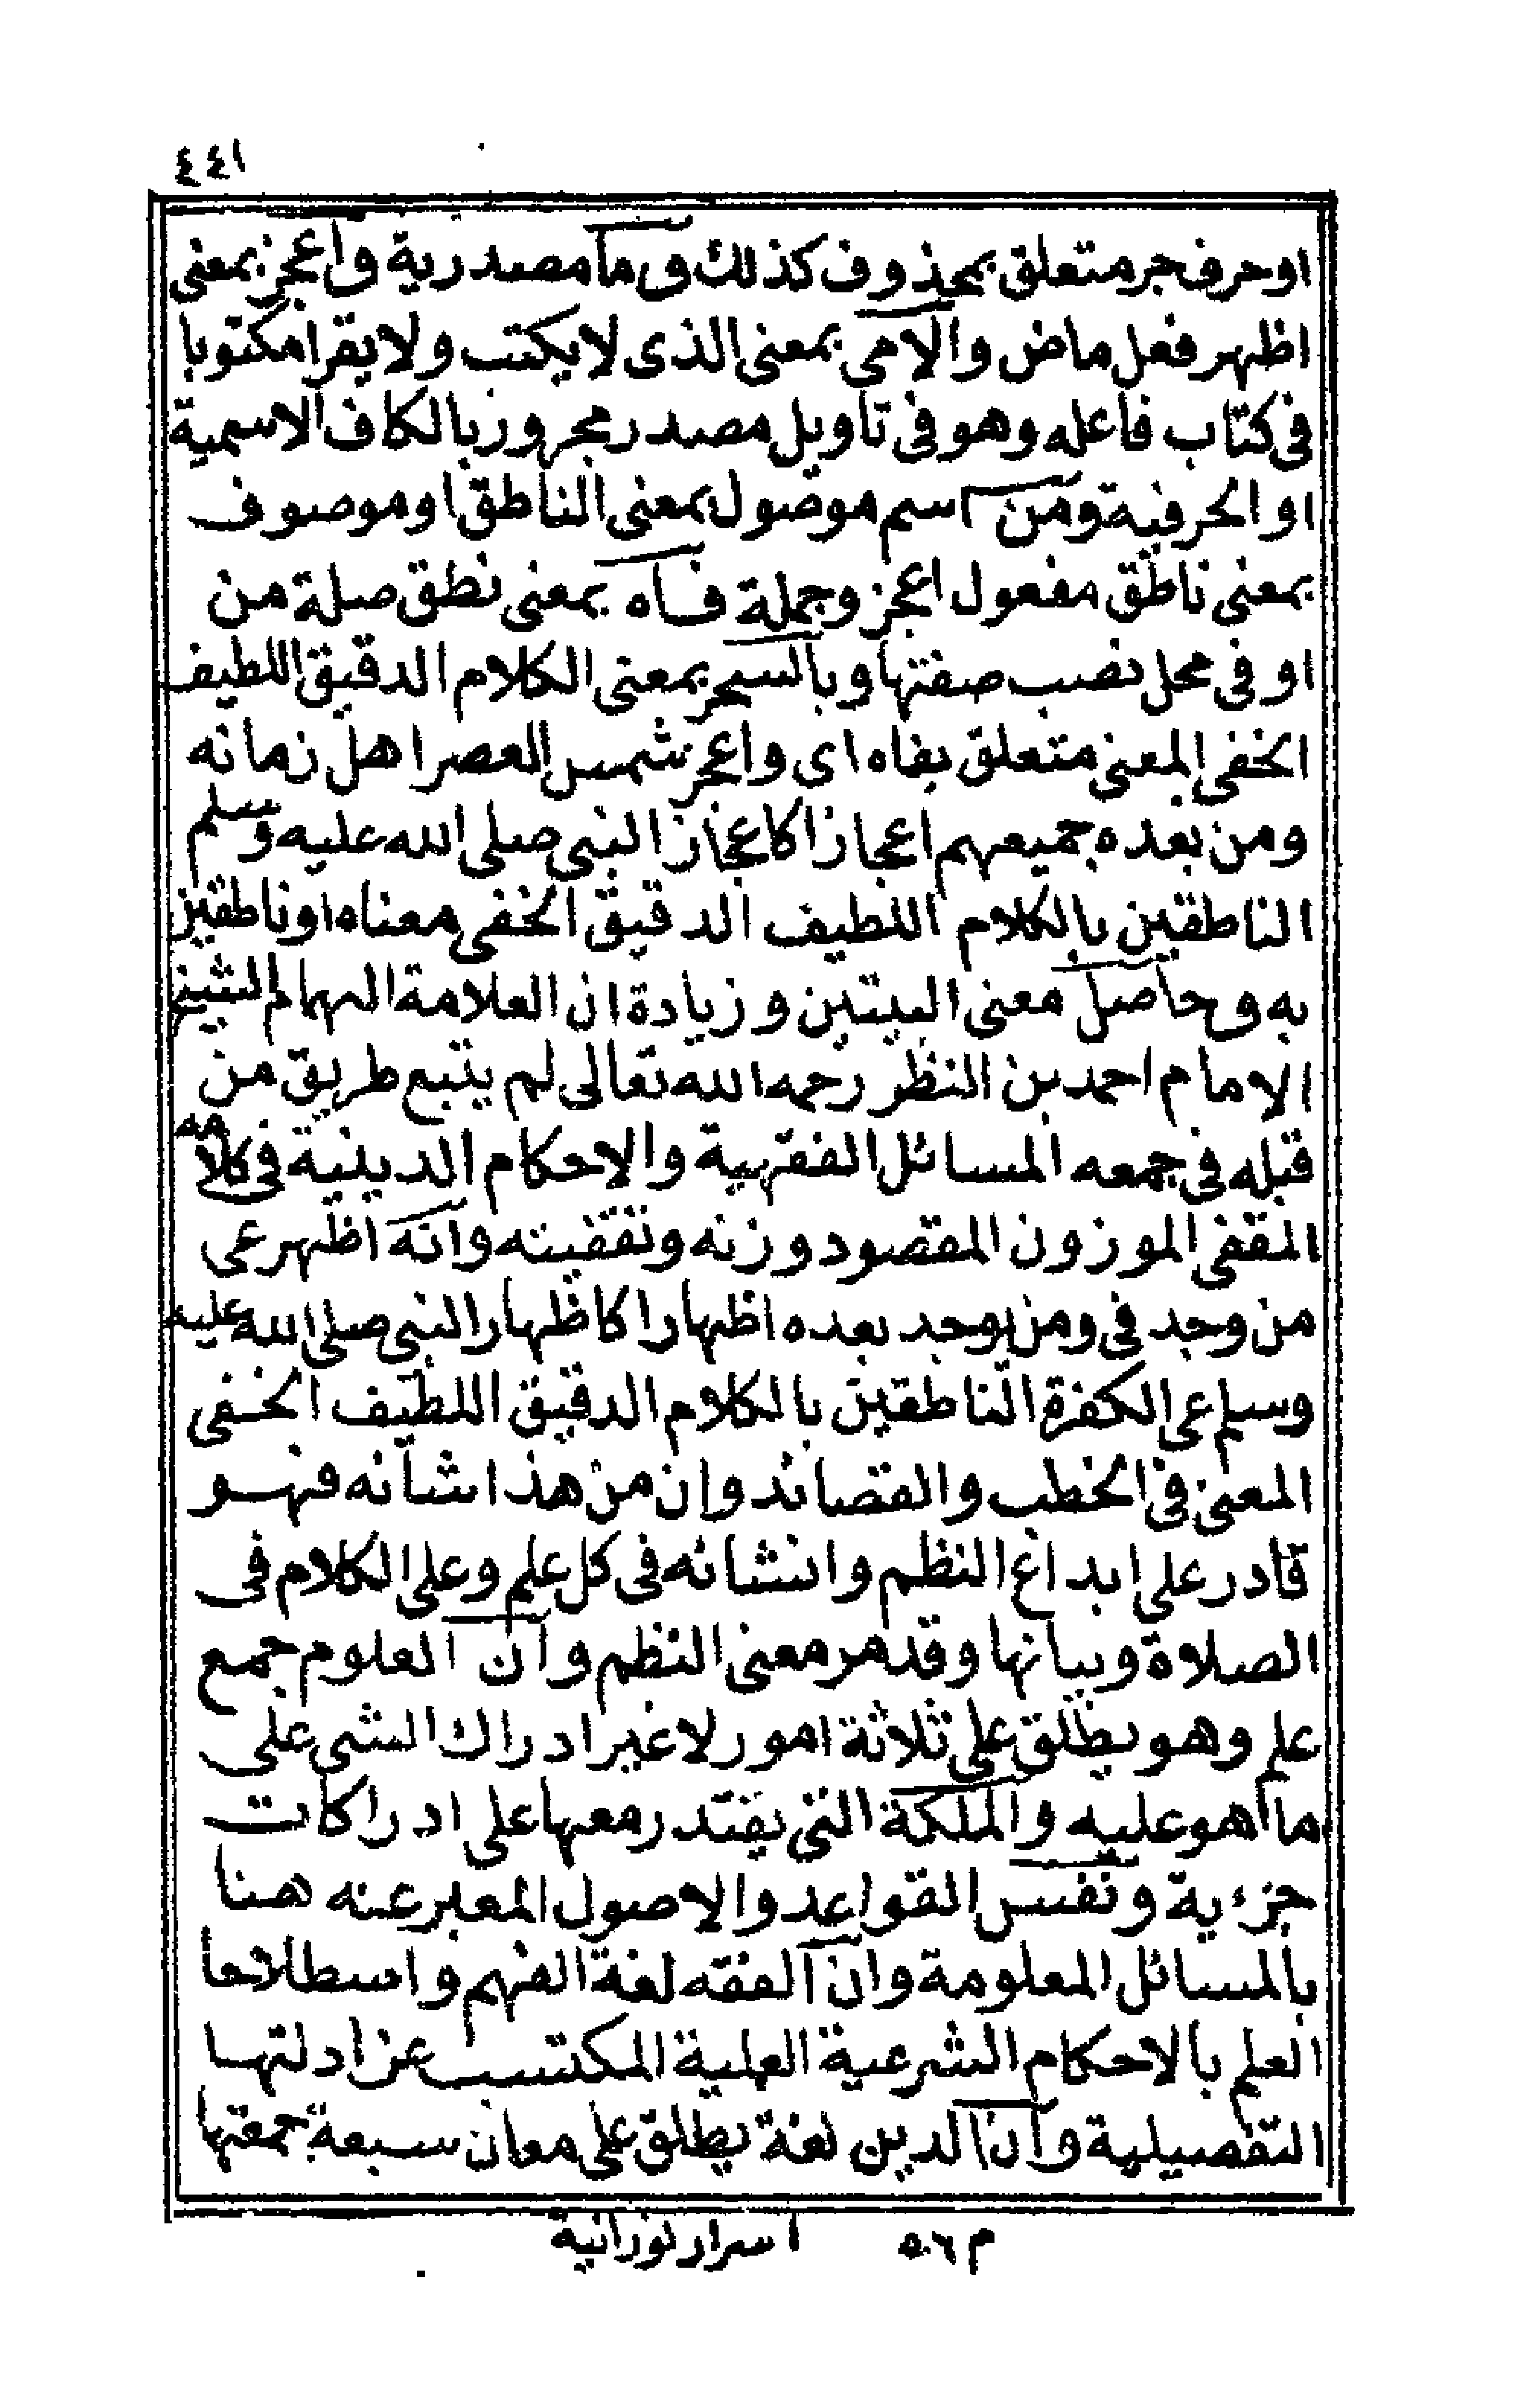 ٤٤١
او حرف جر متعلق بمحذوف كذلك وما مصدرية واعجز بمعنى
اظهر فعل ماض والامى بمعنى الذى لا يكتب ولا يقرا مكتوبا
فى كتاب فاعله وهو فى تاويل مصدر مجرور بالكاف الاسمية
او الحرفية ومن اسم موصول بمعنى الناطق او موصوف
بمعنى ناطق مفعول اعجز وجملة فاه بمعنى نطق صلة من
او فى محل نصب صفتها وبالسحر بمعنى الكلام الدقيق اللطيف
الخفى المعنى متعلق بفاه اى واعجز شمس العصر اهل زمانه
ومن بعده جميعهم اعجازا كاعجاز النبى صلى الله عليه وسلم
الناطقين بالكلام اللطيف الدقيق الخفى معناه او ناطقين
به وحاصل معنى البيتين وزيادة ان العلامة الهمام الشيخ
الامام احمد بن النظر رحمه الله تعالى لم يتبع طريق من
قبله فى جمعه المسائل الفقهية والاحكام الدينية فى كلامه
المقفى الموزون المقصود وزنه وتقفيته وانه اظهر عى
من وجد فى ومن يوجد بعده اظهارا كاظهار النبى صلى الله عليه
وسلم عى الكفرة الناطقين بالكلام الدقيق اللطيف الخفى
المعنى فى الخطب والقصائد وان من هذا شانه فهو
قادر على ابداع النظم وانشائه فى كل علم وعلى الكلام فى
الصلاة وبيانها وقد مر معنى النظم وان العلوم جمع
علم وهو يطلق على ثلاثة امور لا غير ادراك الشى على
ما هو عليه والملكة التى يقتدر معها على ادراكات
جزءية ونفس القواعد والاصول المعبر عنه هنا
بالمسائل المعلومة وان الفقه لغة الفهم واسطلاحا
العلم بالاحكام الشرعية العملية المكتسب عن ادلتها
التفصيلية وان الدين لغة يطلق على معان سبعة جمعتها
م ٥٦ اسرار نورانية